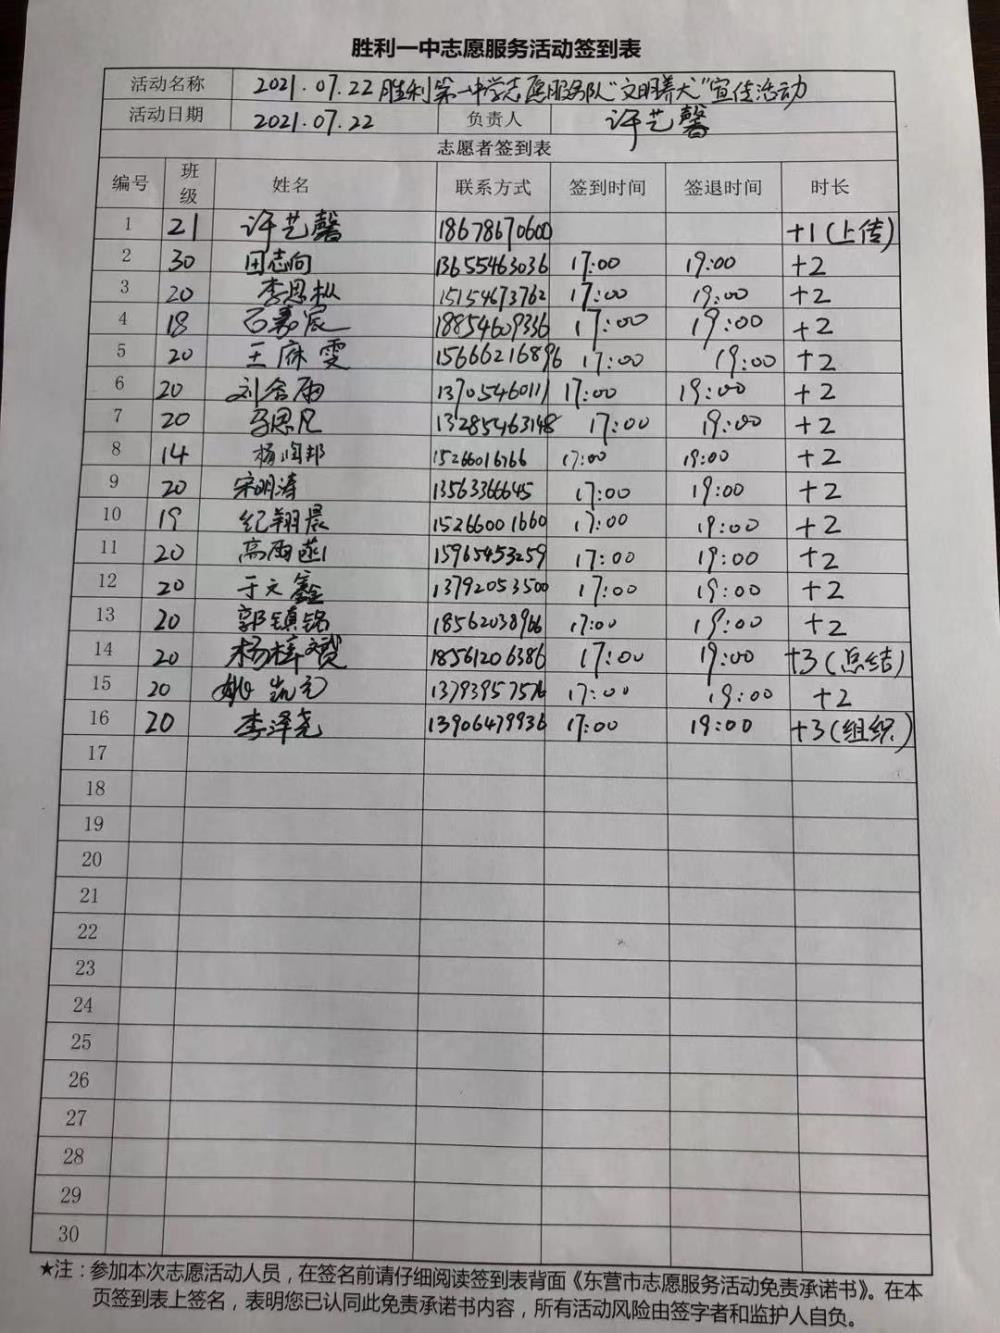 胜利一中志愿服务活动签到表
活动名称 2021.07.22胜利第一中学志愿服务队“文明养犬”宣传活动
活动日期 2021.07.22 负责人 许艺馨
志愿者签到表
编号 班级 姓名 联系方式 签到时间 签退时间 时长
1 21 许艺馨 18678670600 +1(上传)
2 30 田志向 13655463036 17:00 19:00 +2
3 20 李思枞 15154673762 17:00 19:00 +2
4 18 石嘉宸 18854609336 17:00 19:00 +2
5 20 王麻雯 15666216896 17:00 19:00 +2
6 20 刘含雨 13705460111 17:00 19:00 +2
7 20 马思凡 13285463148 17:00 19:00 +2
8 14 杨润邦 15266016766 17:00 19:00 +2
9 20 宋明涛 13563366645 17:00 19:00 +2
10 19 纪翔晨 15266001660 17:00 19:00 +2
11 20 高雨菡 15965453259 17:00 19:00 +2
12 20 于文鑫 13792053500 17:00 19:00 +2
13 20 郭镇铭 18562038966 17:00 19:00 +2
14 20 杨梓赟 18561206386 17:00 19:00 +3(总结)
15 20 姚凯元 13793957576 17:00 19:00 +2
16 20 李泽尧 13906479936 17:00 19:00 +3(组织)
17
18
19
20
21
22
23
24
25
26
27
28
29
30
★注：参加本次志愿活动人员，在签名前请仔细阅读签到表背面《东营市志愿服务活动免责承诺书》。在本
页签到表上签名，表明您已认同此免责承诺书内容，所有活动风险由签字者和监护人自负。